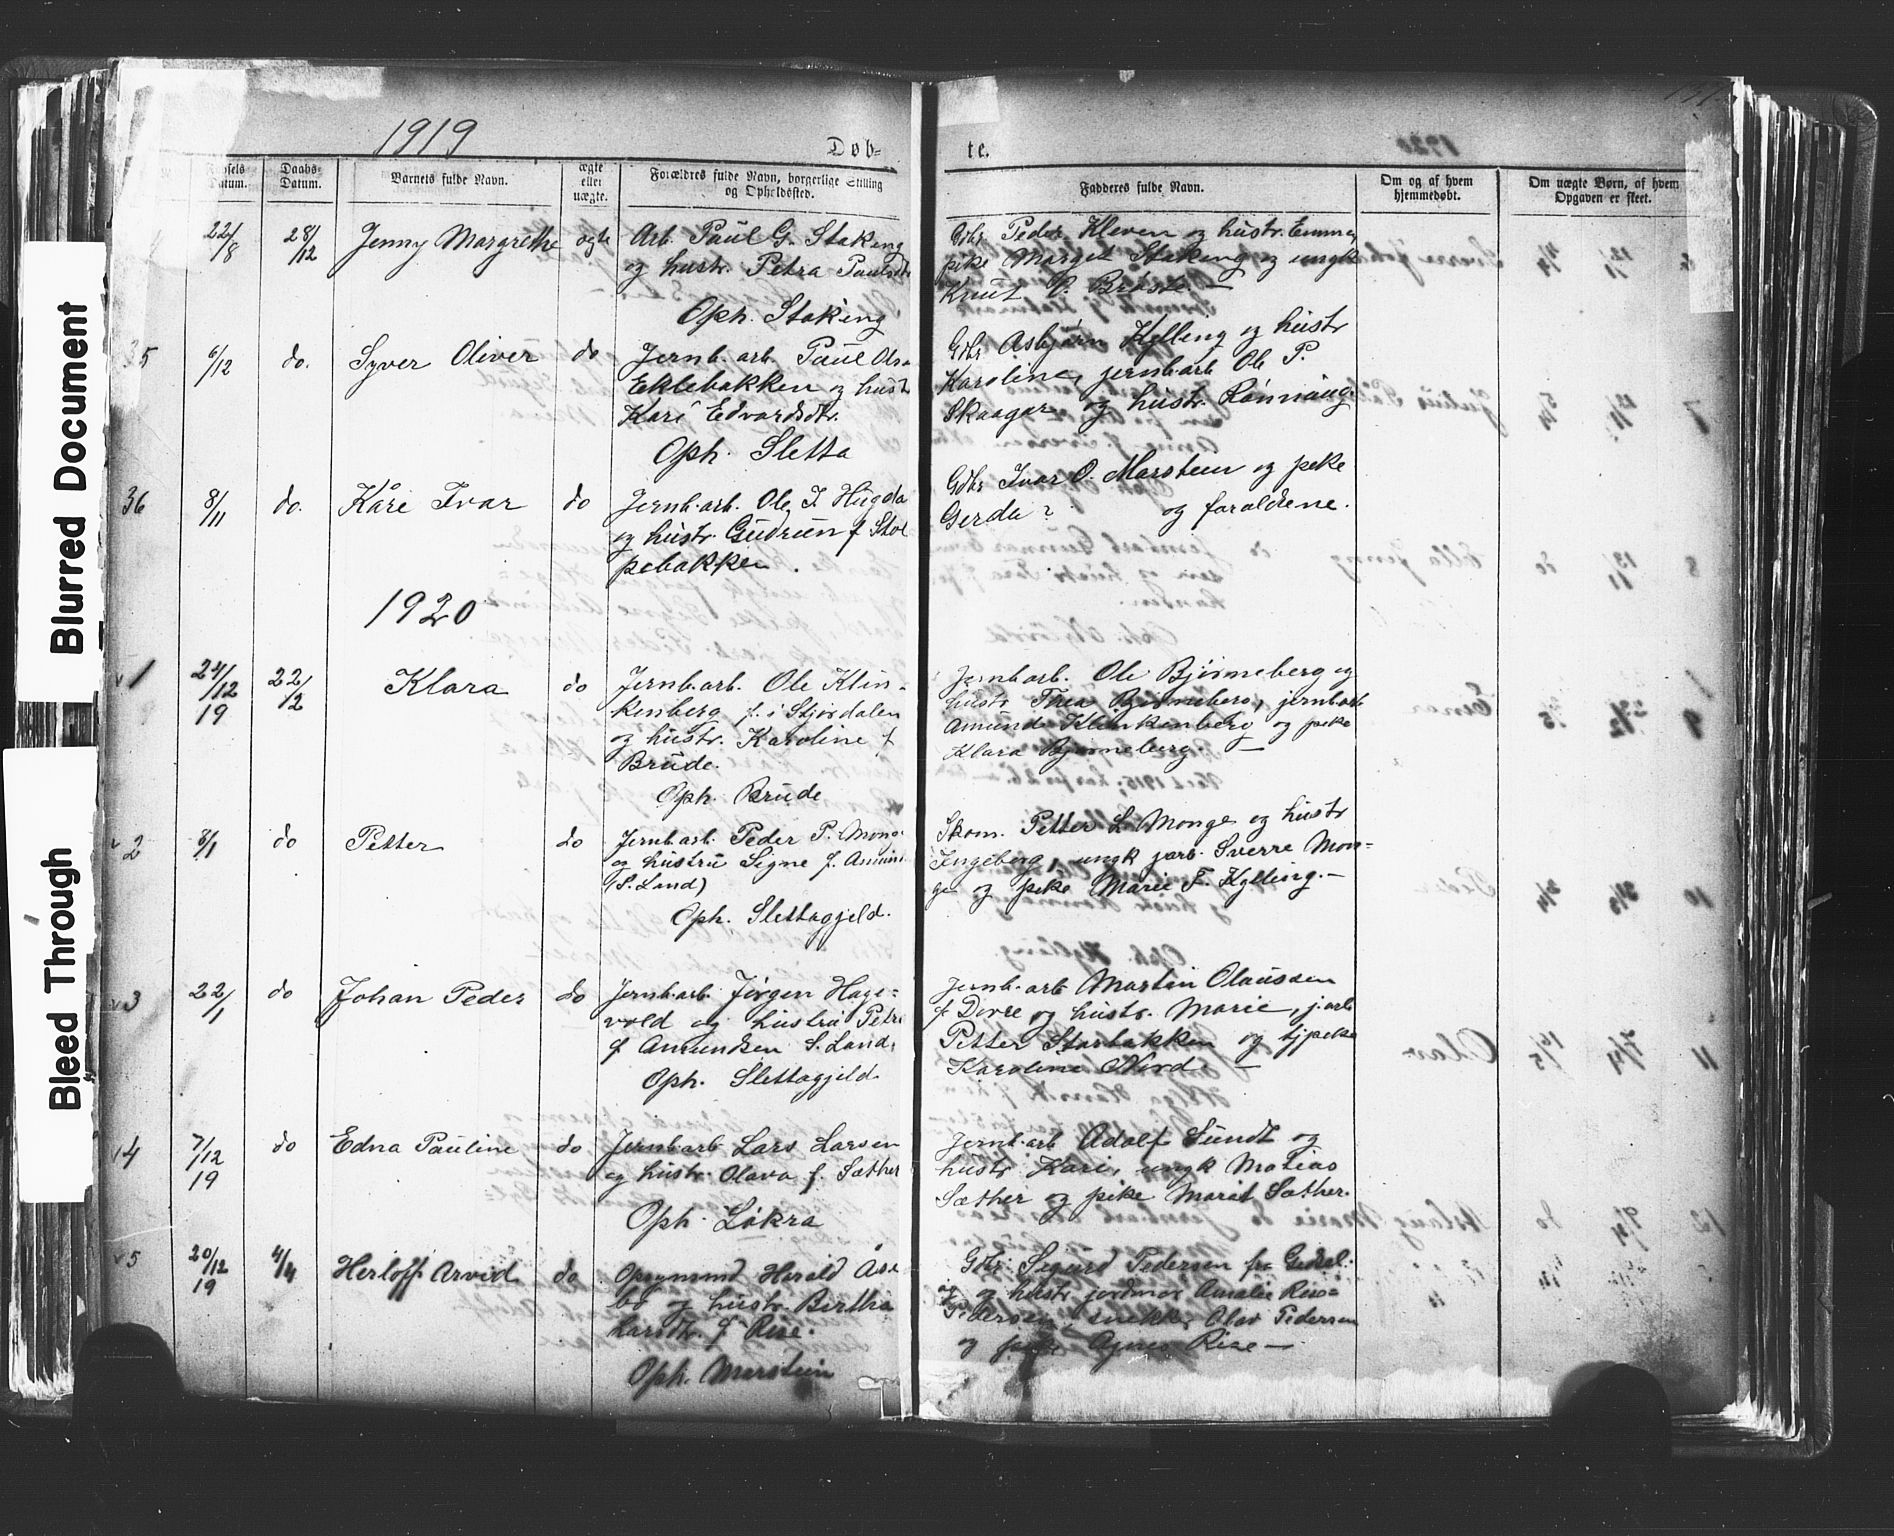 Blurred Document
Bleed Through
1919
Døb-
te.
1920
Fødsels Datum.
Daabs-Datum.
Barnets fulde Navn.
ægte eller uægte.
Forældres fulde Navn, borgerlige Stilling og Opholdssted.
Fadderes fulde Navn.
Om og af hvem hjemmedøbt.
Om uægte Børn, af hvem Opgaven er skeet.
22/8 28/12 Jenny Margrethe ægte Arb. Paul G. Staking
og hustr. Petra Paulsdtr
Oph. Staking
Gbr. Peder Kleven og hustr. Emma,
pike Margit Staking og ungk
Knut P. Brøste. —
35 6/12 do. Syver Oliver do Jernb.arb. Paul Ols.
Eklebakken og hustr
Kari Edvardsdtr.
Oph. Sletta
Gbr. Asbjørn Kylling og hustr
Karoline, jernb.arb Ole P.
Skaagar og hustr. Rønnaug.
36 8/11 do. Kåre Ivar do Jernb.arb. Ole I. Hugda
og hustr. Gudrun f Stol
pebakken.
Gbr Ivar O. Marstein og pike
Gerda ? og forældrene.
1920
v 1 24/12 19 22/2 Klara do Jernb.arb. Ole Klin-
kenberg f. i Stjørdalen
og hustr. Karoline f
Brude.
Oph. Brude
Jernb.arb. Ole Bjørneberg og
hustr Thea Bjørneberg, jernb.arb
Amund Klinkenberg og pike
Klara Bjørneberg. —
v 2 8/1 do Petter do Jernb.arb. Peder P. Monge
og hustru Signe f. Amund
(S. Land)
Oph. Slettagjeld.
Skom. Petter L. Monge og hustr
Ingeberg, ungk jarb. Sverre Mon=
ge og pike Marie F. Kylling. —
v 3 22/1 do Johan Peder do Jernb.arb. Jørgen Hage=
vold og hustru Petra
f Amundsen S. Land.
Oph. Slettagjeld.
Jernb.arb Martin Olaussen
f Dovre og hustr. Marie, j.arb
Petter Storbakken og tjpike
Karoline Nord —
v 4 7/12 19 do Edna Pauline do Jernb.arb Lars Larsen
og hustr. Olava f. Sæther
Oph. Løkra
Jernb.arb Adolf Sundt og
hustr Kari, ungk Matias
Sæther og pike Marit Sæther.
v 5 20/12 19 4/4 Herloff Arvid do Opsynsmd Harald Åse
bø og hustr. Bertha
harsdtr. f Rise.
Oph. Marstein
Gbr. Sigurd Pedersen fra
og hustr. jordmor Amalie Rise=
Pedersen, snekk. Olav Pedersen
og pike Agnes Rise —